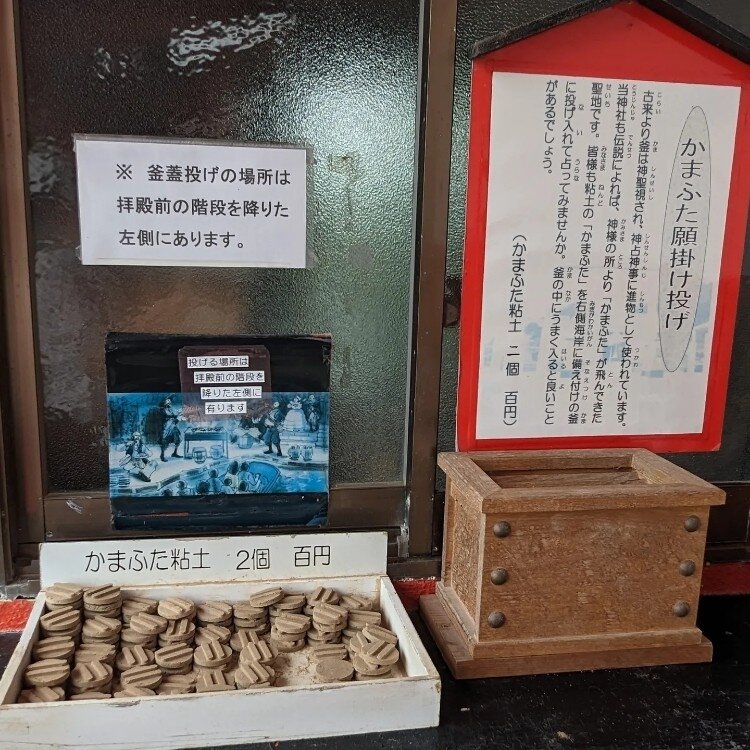 ※ 釜蓋投げの場所は
拝殿前の階段を降りた
左側にあります。
投げる場所は
拝殿前の階段を
降りた左側に
有ります
かまふた粘土 2個 百円
かまふた願掛け投げ
古来より釜は神聖視され、神占神事に進物として使われています。
当神社も伝説によれば、神様の所より「かまふた」が飛んできた
聖地です。皆様も粘土の「かまふた」を右側海岸に備え付けの釜
に投げ入れて占ってみませんか。釜の中にうまく入ると良いこと
があるでしょう。
(かまふた粘土 二個 百円)